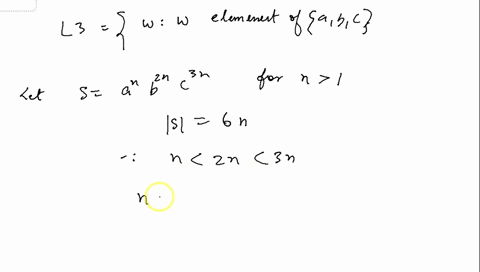 L3 = { w : w element of {a, b, c}
Let S = aⁿ b²ⁿ c³ⁿ for n > 1
|S| = 6n
∵ n < 2n < 3n
n